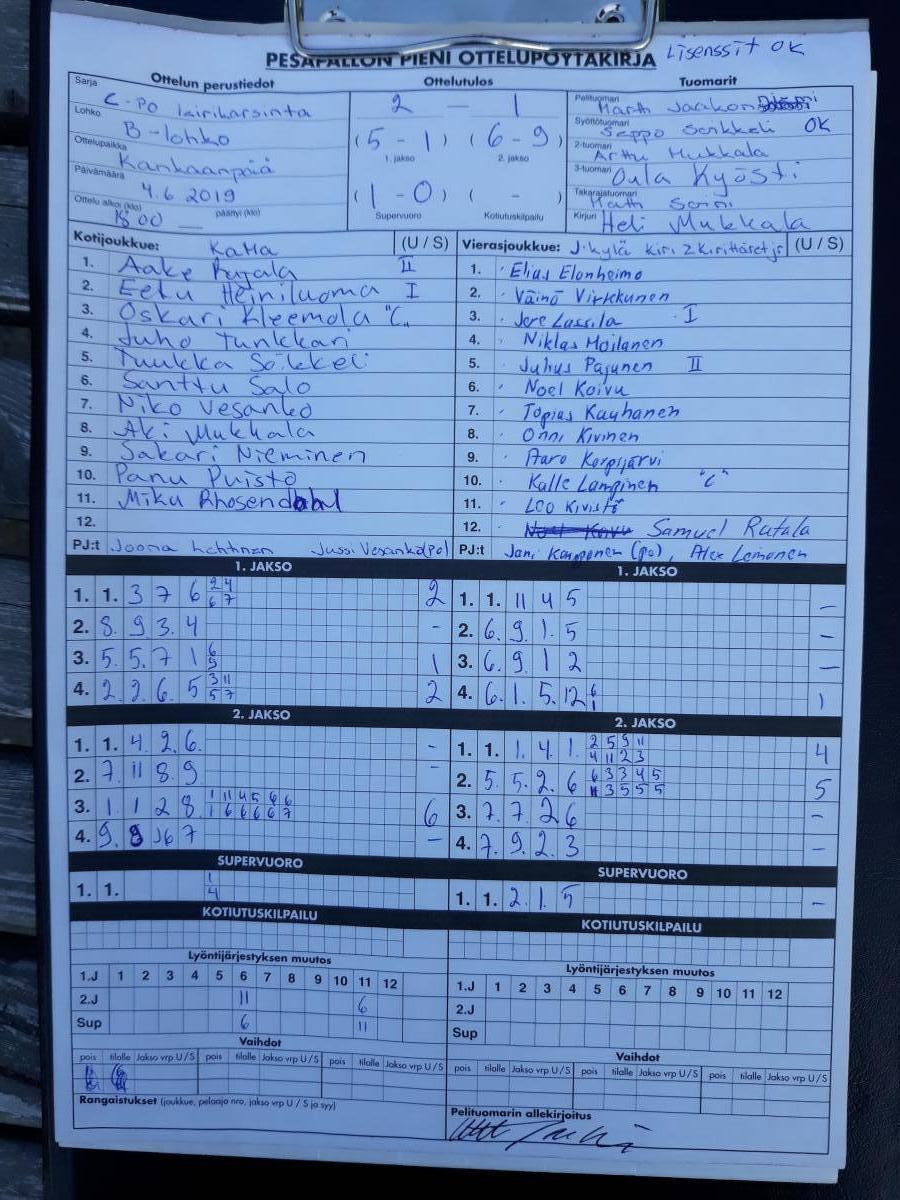 Lisenssit OK
PESÄPALLON PIENI OTTELUPÖYTÄKIRJA
Ottelun perustiedot Ottelutulos Tuomarit
Sarja C-po leirikarsinta
Lohko B-lohko
Ottelupaikka Kankaanpää
Päivämäärä 4.6 2019
Ottelu alkoi (klo) 18.00 päättyi (klo)
2 - 1
(5 - 1) (6 - 9)
1. jakso 2. jakso
(1 - 0) ( - )
Supervuoro Kotiutuskilpailu
Pelituomari
Syöttötuomari Seppo OK
2-tuomari Arttu Mukkala
3-tuomari Oula Kyösti
Takarajatuomari
Kirjuri Heli Mukkala
Kotijoukkue: KaMa (U / S)
1. Aake Rajala II
2. Eetu Heiniluoma I
3. Oskari Kleemola "C"
4. Juho Tunkkari
5. Tuukka
6. Santtu Salo
7. Niko Vesanko
8. Aki Mukkala
9. Sakari Nieminen
10. Panu Puisto
11. Miku Rhosendahl
12.
PJ:t Joona Lehtinen Jussi Vesanko (po)
Vierasjoukkue: J.kylä Kiri 2 Kirittäret jr (U / S)
1. Elias Elonheimo
2. Väinö Virkkunen
3. Jere Lassila I
4. Niklas Moilanen
5. Juhus Pajunen II
6. Noel Koivu
7. Topias Kauhanen
8. Onni Kivinen
9. Aaro Korpijärvi
10. Kalle Lampinen "C"
11. Leo Kivistö
12. Noel Koivu Samuel Rutala
PJ:t Jani Kamponen (po), Alex Leinonen
1. JAKSO
1. 1. 3 7 6 2 4 2
6 7
2. 8. 9 3. 4 -
3. 5. 5. 7 1 6 1
9
4. 2. 2. 6. 5 3 11 2
5 7
1. JAKSO
1. 1. 11 4 5 -
2. 6. 9. 1. 5 -
3. 6. 9 1 2 -
4. 6. 1. 5. 12 6 1
1
2. JAKSO
1. 1. 4. 2. 6. -
2. 7. 11 8. 9 -
3. 1. 1 2 8. 1 11 4 5 6 6 6
1 6 6 6 6 7
4. 9. 8 6 7 -
2. JAKSO
1. 1. 1. 4. 1. 2 5 9 11 4
4 11 2 3
2. 5. 5. 2. 6 6 3 3 4 5 5
11 3 5 5 5
3. 7. 7. 2 6 -
4. 7. 9. 2. 3 -
SUPERVUORO
1. 1. 1
4
SUPERVUORO
1. 1. 2. 1. 5 -
KOTIUTUSKILPAILU
KOTIUTUSKILPAILU
Lyöntijärjestyksen muutos
1.J 1 2 3 4 5 6 7 8 9 10 11 12
2.J 11 6
Sup 6 11
Lyöntijärjestyksen muutos
1.J 1 2 3 4 5 6 7 8 9 10 11 12
2.J
Sup
Vaihdot
pois tilalle Jakso vrp U / S pois tilalle Jakso vrp U / S pois tilalle Jakso vrp U / S
Vaihdot
pois tilalle Jakso vrp U / S pois tilalle Jakso vrp U / S pois tilalle Jakso vrp U / S
Rangaistukset (joukkue, pelaaja nro, jakso vrp U / S ja syy)
Pelituomarin allekirjoitus